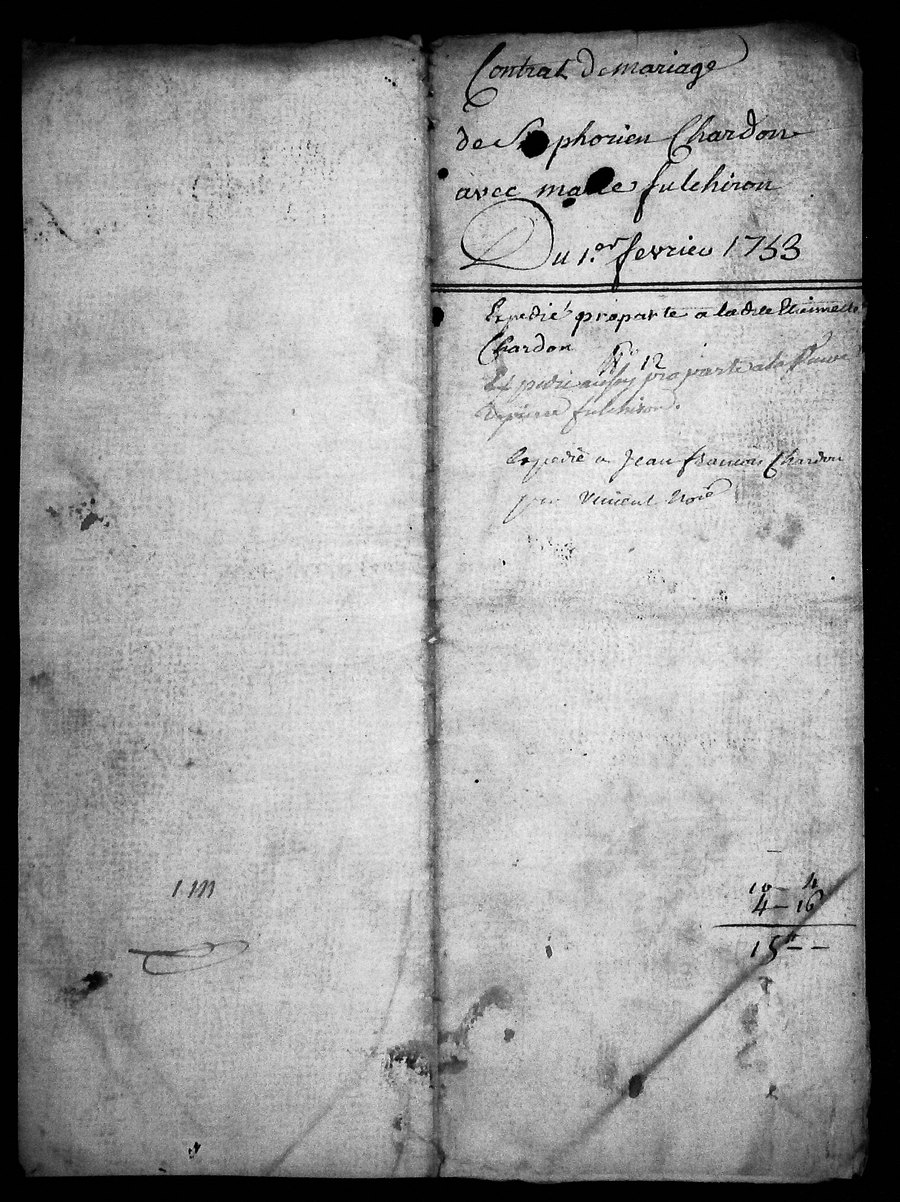 Contrat De mariage
de S phorien Chardon
avec ma e fulchiron
Du 1.er fevrier 1753
Expedié pro parte a ladte Etiennette
Chardon
No 12
Expedié aussy pro parte a la Veuve
de pierre fulchiron.
Expedié a Jean francois Chardon
par Vincent Nore
1 m
10 - 4
4 - 16
15 - -